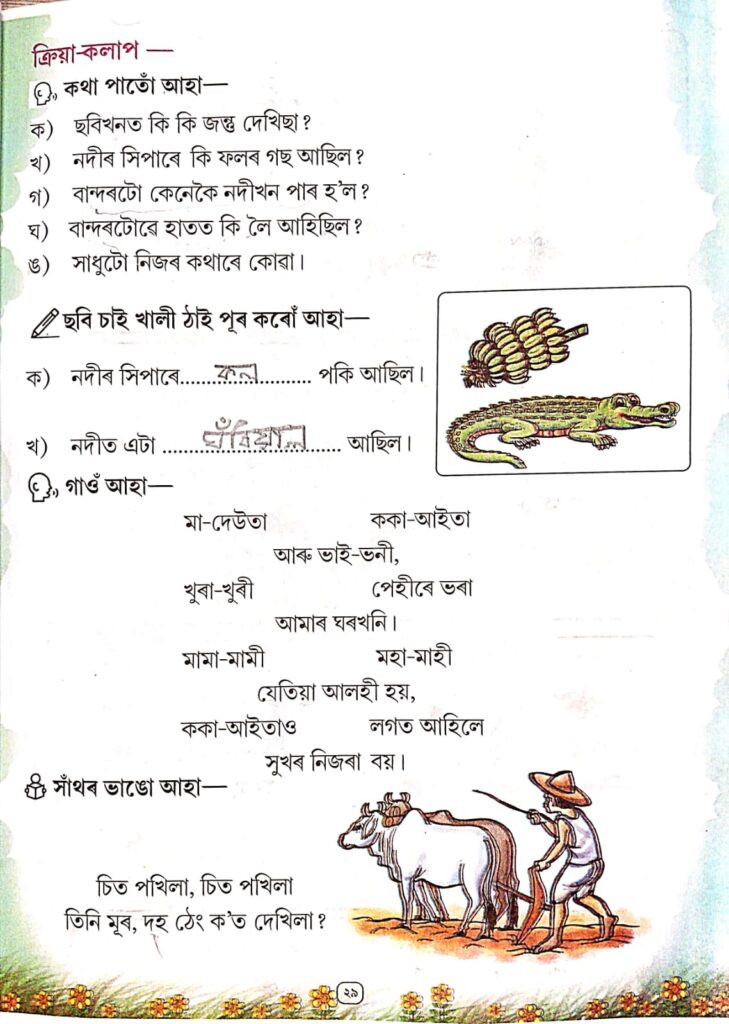 ক্ৰিয়া-কলাপ —
কথা পাতোঁ আহা—
ক) ছবিখনত কি কি জন্তু দেখিছা?
খ) নদীৰ সিপাৰে কি ফলৰ গছ আছিল?
গ) বান্দৰটো কেনেকৈ নদীখন পাৰ হ'ল?
ঘ) বান্দৰটোৱে হাতত কি লৈ আহিছিল?
ঙ) সাধুটো নিজৰ কথাৰে কোৱা।
ছবি চাই খালী ঠাই পূৰ কৰোঁ আহা—
ক) নদীৰ সিপাৰে.......কল.......... পকি আছিল।
খ) নদীত এটা .......ঘঁৰিয়াল....... আছিল।
গাওঁ আহা—
মা-দেউতা ককা-আইতা
আৰু ভাই-ভনী,
খুৰা-খুৰী পেহীৰে ভৰা
আমাৰ ঘৰখনি।
মামা-মামী মহা-মাহী
যেতিয়া আলহী হয়,
ককা-আইতাও লগত আহিলে
সুখৰ নিজৰা বয়।
সাঁথৰ ভাঙো আহা—
চিত পখিলা, চিত পখিলা
তিনি মূৰ, দহ ঠেং ক'ত দেখিলা?
২৯